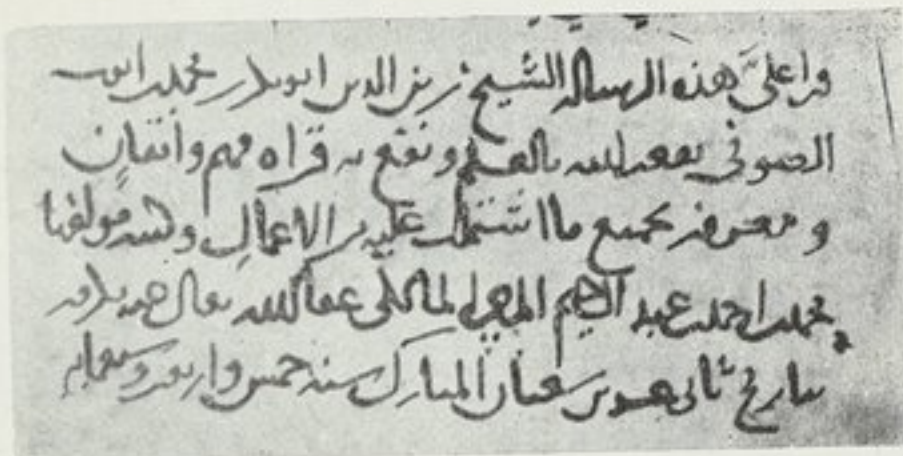 قرا على هذه الرساله الشيخ زين الدين ابو بكر بن محمد بن ايوب
الصوفي نفعه الله بالعلم ونفع به قراه فهم واتقان
ومعرفه بجميع ما اشتملت عليه من الاعمال وكتبه مولفها
محمد بن احمد بن عبد الرحيم المزي المالكي عفا الله تعالى عنه
بتاريخ ثاني شعبان المبارك سنه خمس واربعين وسبعمايه